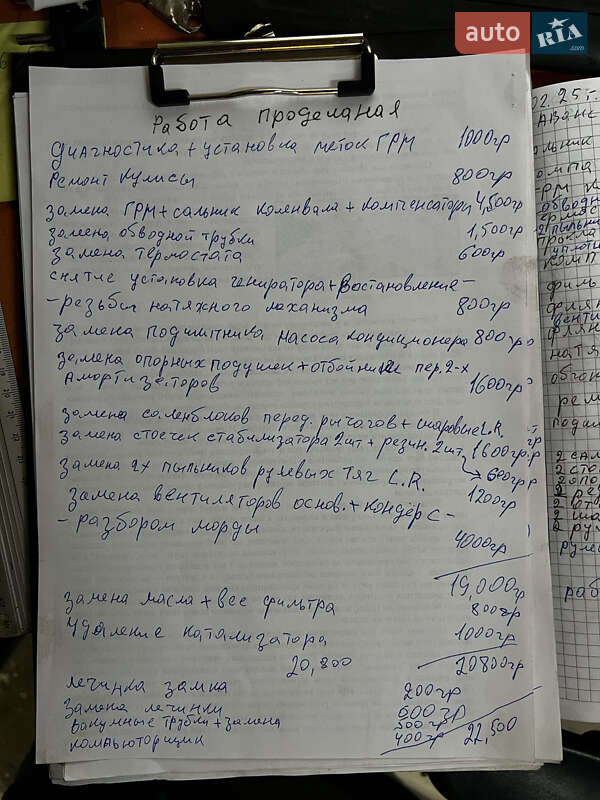 auto RIA .com
Работа проделаная
диагностика + установка меток ГРМ 1000гр
ремонт кулисы 800гр
замена ГРМ + сальник коленвала + компенсаторы 4,500гр
замена обводной трубки 1,500гр
замена термостата 600гр
снятие установка гениратора + востановление -
- резьбы натяжного механизма 800гр
замена подшипника насоса кондиционера 800гр
замена опорных подушек + отбойники пер. 2-х
амортизаторов 1600гр
замена саленблоков перед. рычагов + шаровые L.R.
замена стоечек стабилизатора 2шт + резин. 2шт 1600гр
600гр
замена 2х пыльников рулевых тяг L.R. 1200гр
замена вентиляторов основ. + кондёр с -
- разбором морды 4000гр
19,000гр
замена масла + все фильтра 800гр
удаление катализатора 1000гр
20,800 20800гр
личинка замка 200гр
замена лечинки 600гр
вакумные трубки + замена 500гр
компьюторщик 400гр 22,500
02.25г.
Аванс